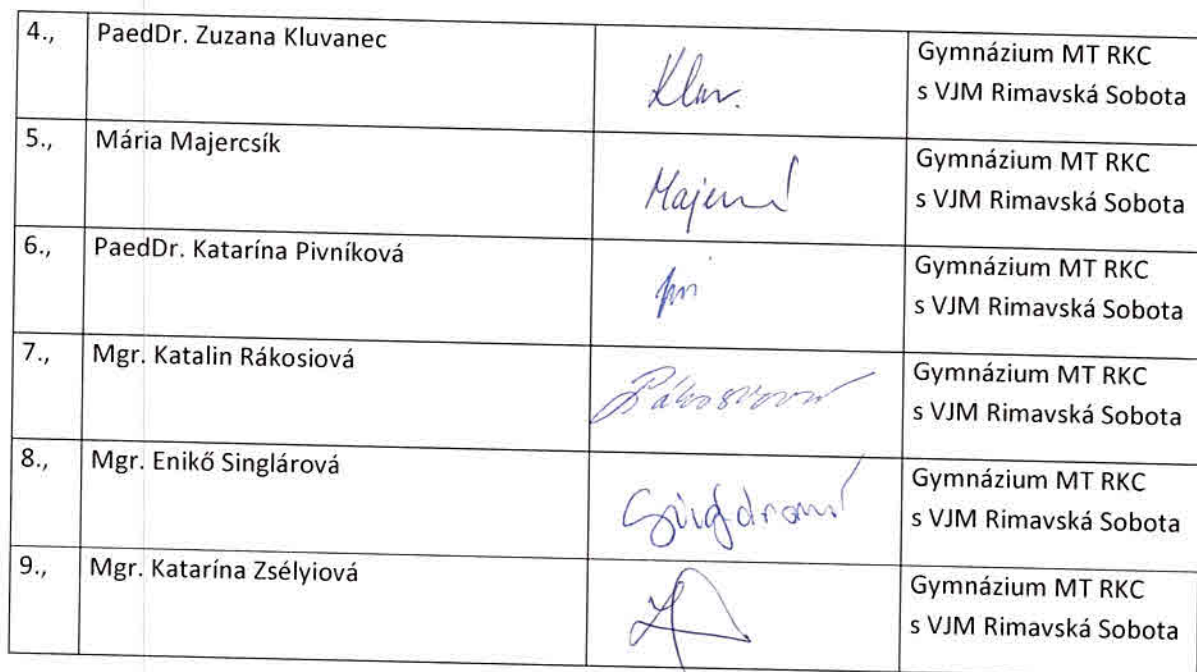 4., PaedDr. Zuzana Kluvanec Gymnázium MT RKC
s VJM Rimavská Sobota
5., Mária Majercsík Gymnázium MT RKC
s VJM Rimavská Sobota
6., PaedDr. Katarína Pivníková Gymnázium MT RKC
s VJM Rimavská Sobota
7., Mgr. Katalin Rákosiová Gymnázium MT RKC
s VJM Rimavská Sobota
8., Mgr. Enikő Singlárová Gymnázium MT RKC
s VJM Rimavská Sobota
9., Mgr. Katarína Zsélyiová Gymnázium MT RKC
s VJM Rimavská Sobota